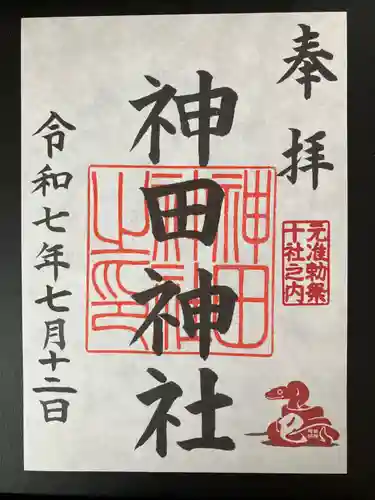 奉拝
元准勅祭
十社之内
神田神社
神田神社之印
令和七年七月十二日